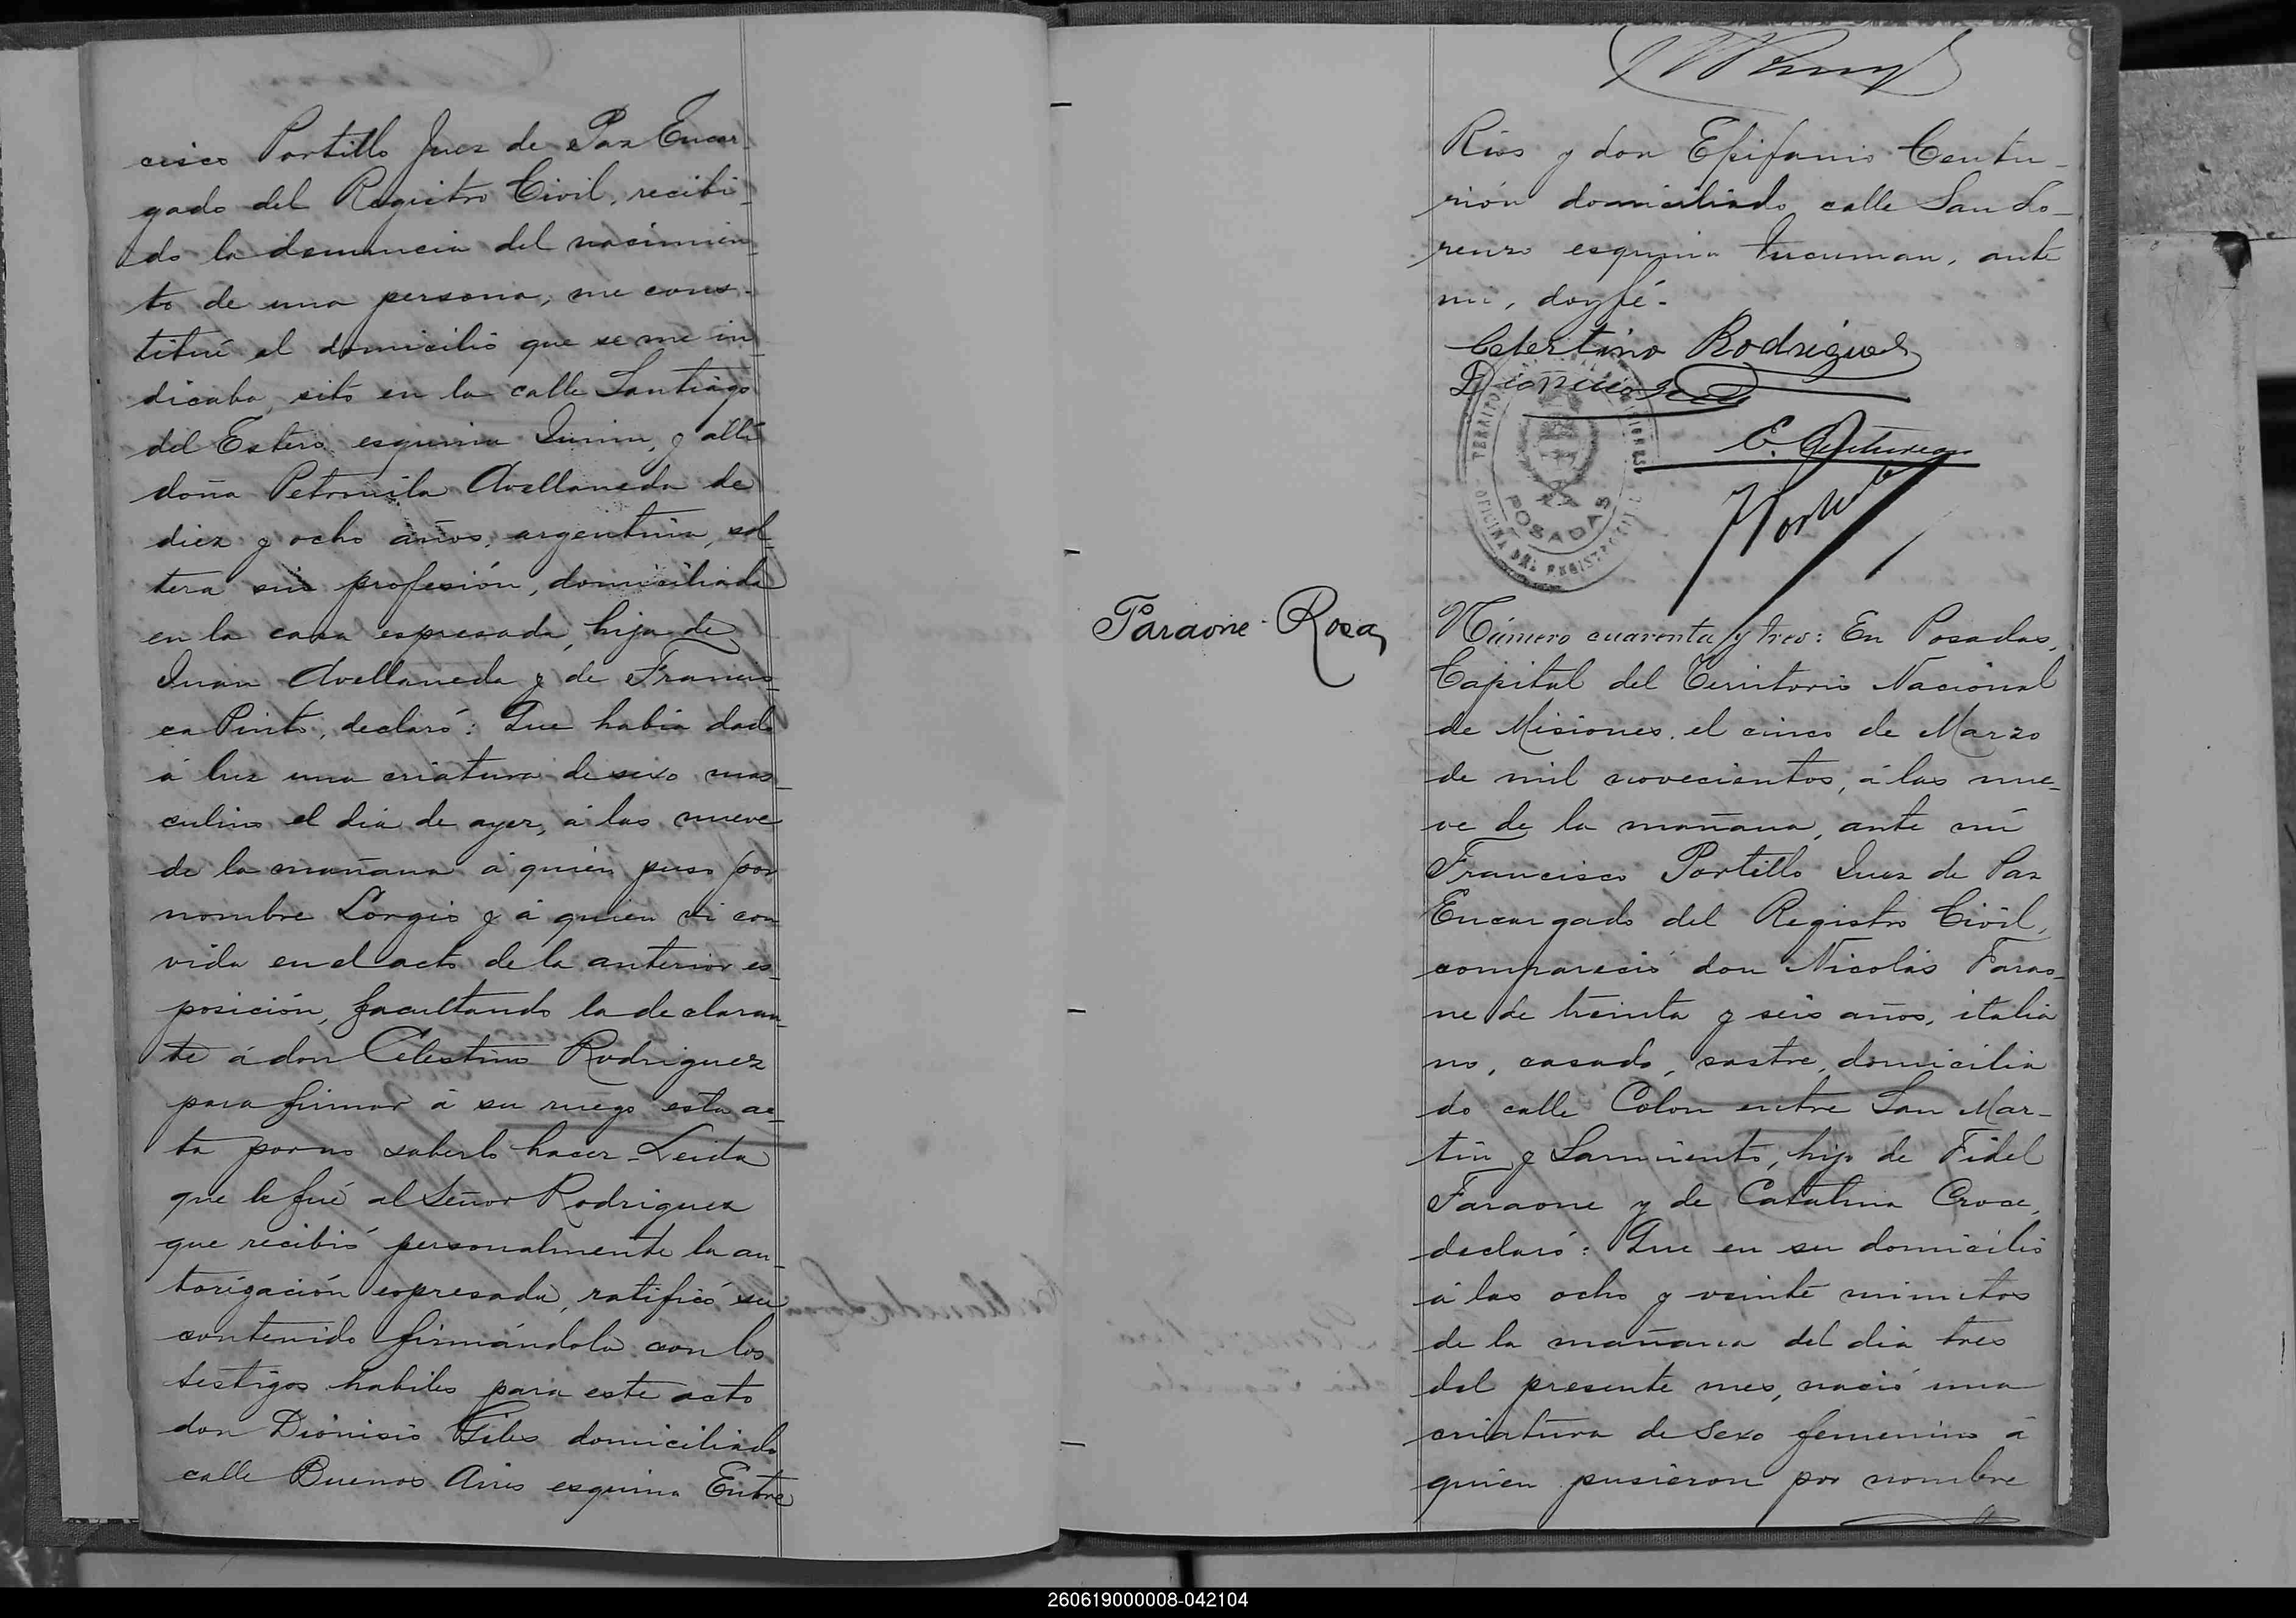 cisco Portillo Juez de Paz Encar-
gado del Registro Civil, recibi-
do la denuncia del nacimien-
to de una persona, me cons-
tituí al domicilio que se me in-
dicaba, sito en la calle Santiago
del Estero esquina Junin, y allí
doña Petronila Avellaneda de
diez y ocho años, argentina, sol-
tera sin profesión, domiciliada
en la casa espresada, hija de
Juan Avellaneda y de Francis-
ca Pinto, declaró: Que habia dado
á luz una criatura de sexo mas-
culino el dia de ayer, á las nueve
de la mañana á quien puso por
nombre Lorgio y á quien vi con
vida en el acto de la anterior es-
posición, facultando la declaran-
te á don Celestino Rodriguez
para firmar á su ruego esta ac-
ta por no saberlo hacer - Leida
que le fué al Señor Rodriguez
que recibió personalmente la au-
torización espresada, ratificó su
contenido firmándola con los
testigos habiles para este acto
don Dionisio Giles domiciliado
calle Buenos Aires esquina Entre
Rios y don Epifanio Centu-
rión domiciliado calle San Lo-
renzo esquina Tucuman, ante
mi, doy fé.-
Celestino Rodriguez
Dionicio
E. Centurion
TERRITORIO
MISIONES
POSADAS
OFICINA DEL REGISTRO CIVIL
FPortillo
Faraone Rosa
Número cuarenta y tres: En Posadas,
Capital del Territorio Nacional
de Misiones, el cinco de Marzo
de mil novecientos, á las nue-
ve de la mañana, ante mí
Francisco Portillo Juez de Paz
Encargado del Registro Civil,
compareció don Nicolás Farao-
ne de treinta y seis años, italia
no, casado, sastre, domicilia
do calle Colon entre San Mar-
tin y Sarmiento, hijo de Fidel
Faraone y de Catalina Croce,
declaró: Que en su domicilio
á las ocho y veinte minutos
de la mañana del dia tres
del presente mes, nació una
criatura de sexo femenino á
quien pusieron por nombre
260619000008-042104